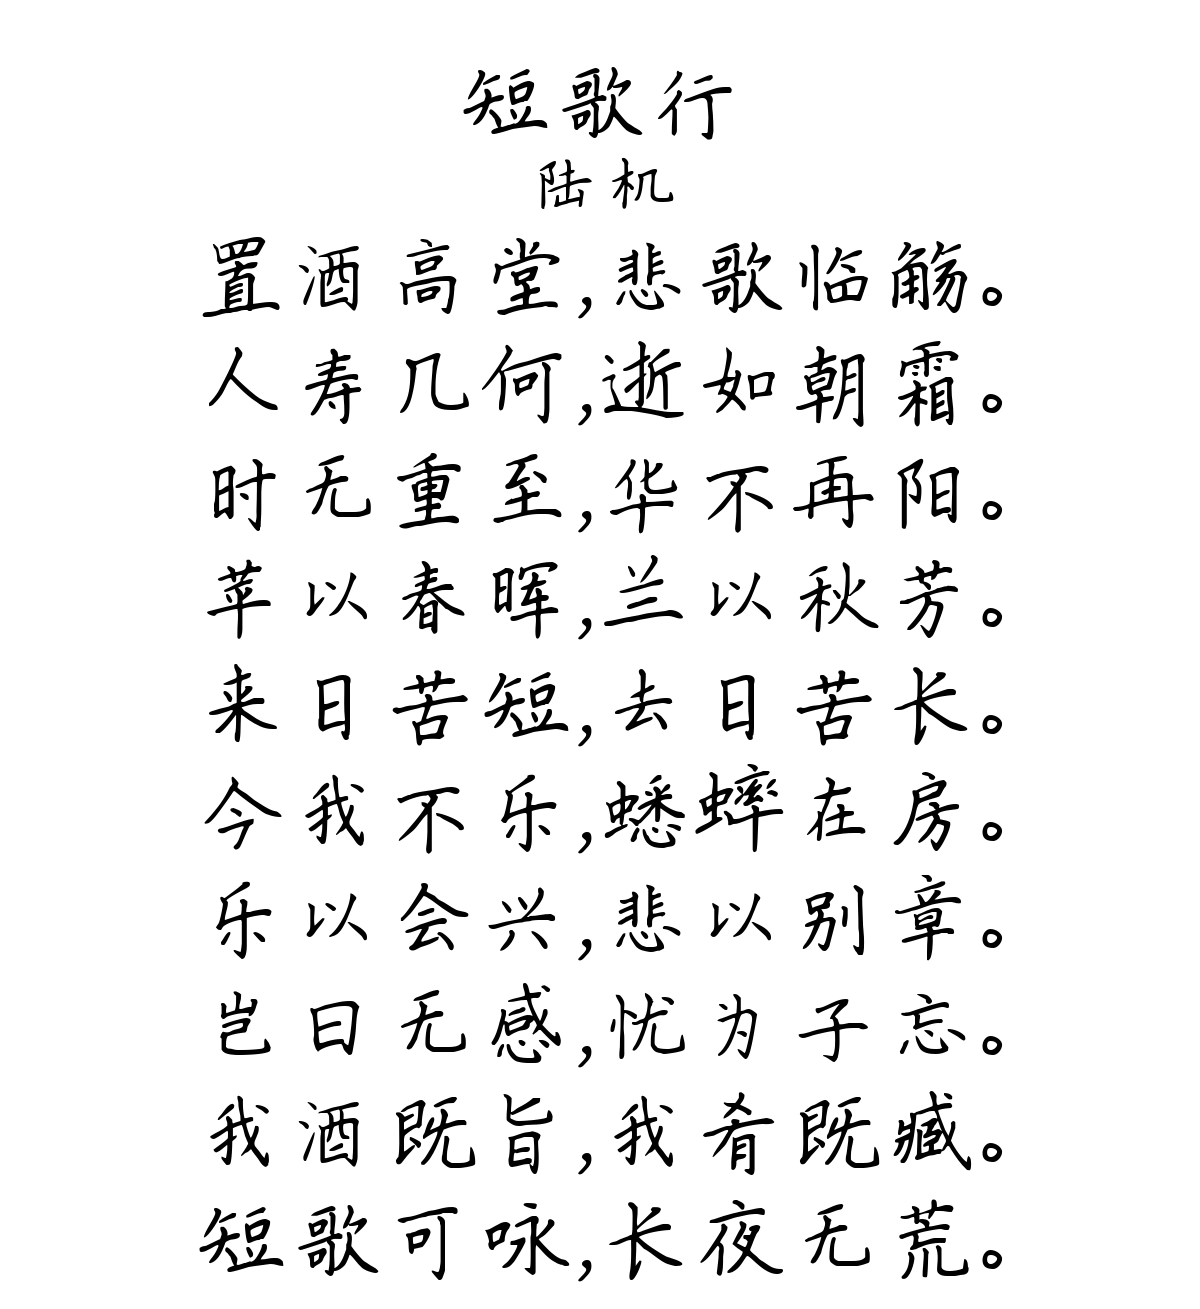 短歌行
陆机
置酒高堂,悲歌临觞。
人寿几何,逝如朝霜。
时无重至,华不再阳。
苹以春晖,兰以秋芳。
来日苦短,去日苦长。
今我不乐,蟋蟀在房。
乐以会兴,悲以别章。
岂曰无感,忧为子忘。
我酒既旨,我肴既臧。
短歌可咏,长夜无荒。